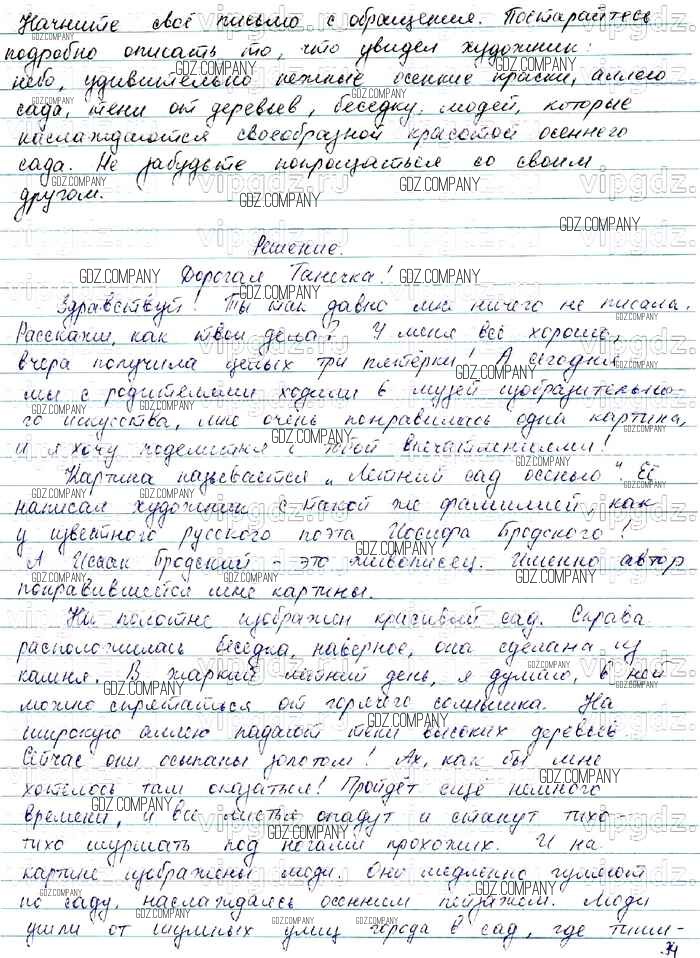 Начните своё письмо с обращения. Постарайтесь
подробно описать то, что увидел художник:
небо, удивительно нежные осенние краски, аллею
сада, тени от деревьев, беседку, людей, которые
наслаждаются своеобразной красотой осеннего
сада. Не забудьте попрощаться со своим
другом.
Решение.
Дорогая Танечка!
Здравствуй! Ты так давно мне ничего не писала.
Расскажи, как твои дела? У меня всё хорошо,
вчера получила целых три пятёрки! А сегодня
мы с родителями ходили в музей изобразительно-
го искусства, мне очень понравилась одна картина,
и я хочу поделиться с тобой впечатлениями!
Картина называется „Летний сад осенью". Её
написал художник с такой же фамилией, как
у известного русского поэта Иосифа Бродского!
А Исаак Бродский - это живописец. Именно автор
понравившейся мне картины.
На полотне изображен красивый сад. Справа
расположилась беседка, наверное, она сделана из
камня. В жаркий летний день, я думаю, в ней
можно спрятаться от горячего солнышка. На
широкую аллею падают тени высоких деревьев.
Сейчас они осыпаны золотом! Ах, как бы мне
хотелось там оказаться! Пройдёт ещё немного
времени, и все листья опадут и станут тихо-
тихо шуршать под ногами прохожих. И на
картине изображены люди. Они медленно гуляют
по саду, наслаждаясь осенним пейзажем. Люди
ушли от шумных улиц города в сад, где тиши-